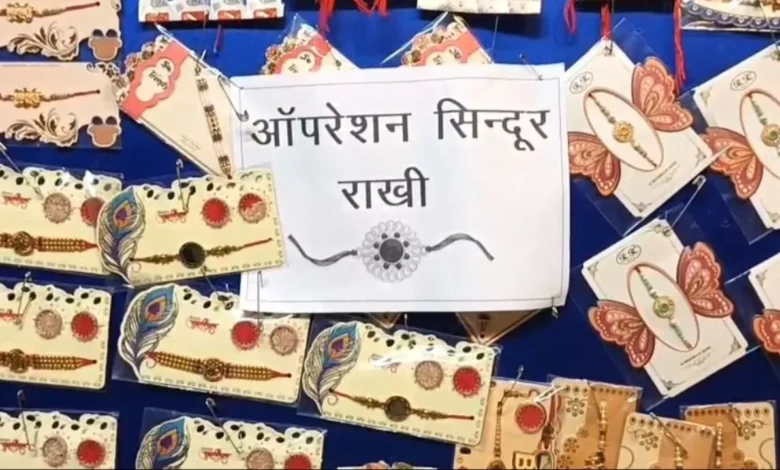 ऑपरेशन सिन्दूर
राखी